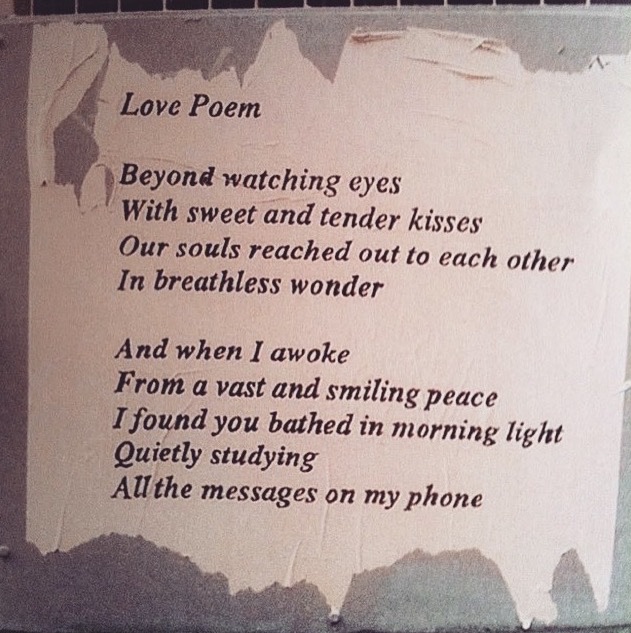 Love Poem
Beyond watching eyes
With sweet and tender kisses
Our souls reached out to each other
In breathless wonder
And when I awoke
From a vast and smiling peace
I found you bathed in morning light
Quietly studying
All the messages on my phone